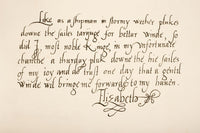 Like as a shipman in stormy wether plukes
downe the sailes tarijnge for bettar winde, so
did I, most noble Kinge, in my vnfortunate
chanche a thurday pluk downe the hie sailes
of my ioy and do trust one day that
winde wil bringe me forwarde to my hauen.
Elizabeth